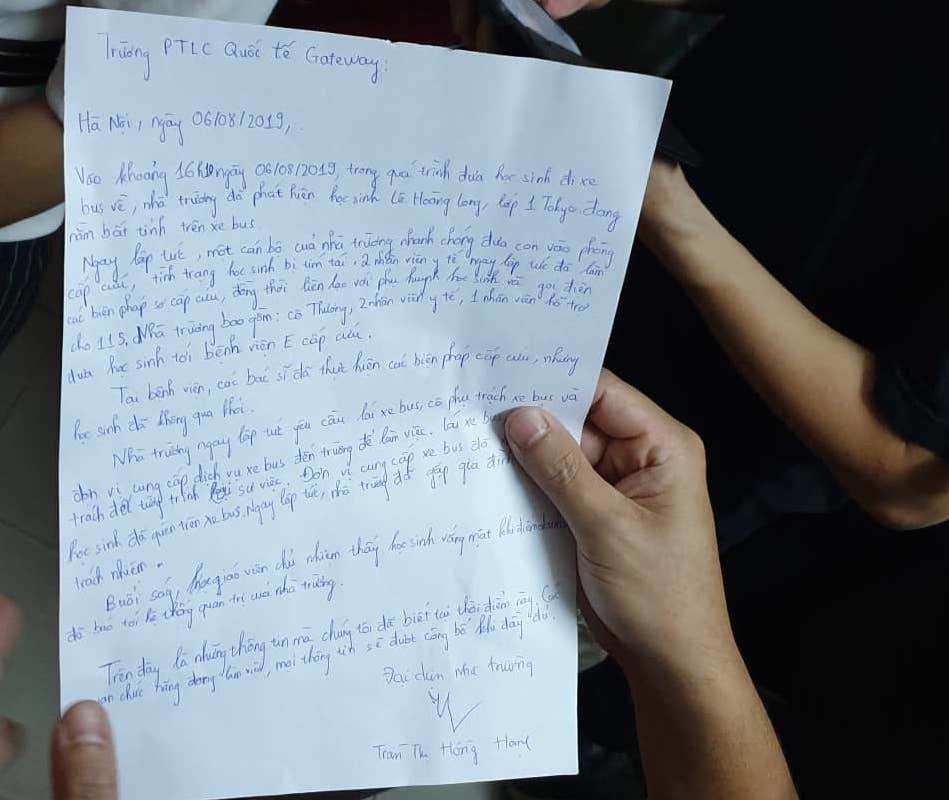 Trường PTLC Quốc tế Gateway:
Hà Nội, ngày 06/08/2019,
Vào khoảng 16h10 ngày 06/08/2019, trong quá trình đưa học sinh đi xe
bus về, nhà trường đã phát hiện học sinh Lê Hoàng Long, lớp 1 Tokyo đang
nằm bất tỉnh trên xe bus.
Ngay lập tức, một cán bộ của nhà trường nhanh chóng đưa con vào phòng
cấp cứu, tình trạng học sinh bị tím tái, 2 nhân viên y tế ngay lập tức đã làm
các biện pháp sơ cấp cứu, đồng thời liên lạc với phụ huynh học sinh và gọi điện
cho 115. Nhà trường bao gồm: cô Thương, 2 nhân viên y tế, 1 nhân viên hỗ trợ
đưa học sinh tới bệnh viện E cấp cứu.
Tại bệnh viện, các bác sĩ đã thực hiện các biện pháp cấp cứu, nhưng
học sinh đã không qua khỏi.
Nhà trường ngay lập tức yêu cầu lái xe bus, cô phụ trách xe bus và
đơn vị cung cấp dịch vụ xe bus đến trường để làm việc. Lái xe
trách đã tường trình sự việc. Đơn vị cung cấp xe bus đã
học sinh đã quên trên xe bus. Ngay lập tức, nhà trường đã gặp gia đình
trách nhiệm.
Buổi sáng, giáo viên chủ nhiệm thấy học sinh vắng mặt khi điểm danh
đã báo tới hệ thống quản trị của nhà trường.
Trên đây là những thông tin mà chúng tôi đã biết tại thời điểm này. Các
chức năng đang làm việc, mọi thông tin sẽ được công bố khi đầy đủ.
Đại diện nhà trường
Trần Thị Hồng Hạnh